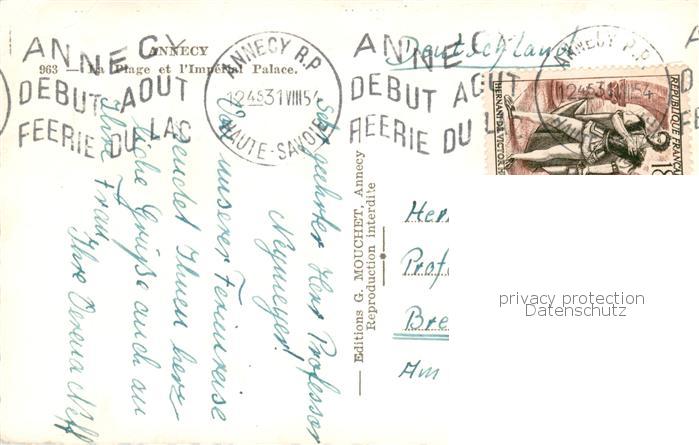 ANNECY
963 — La Plage et l'Impérial Palace.
ANNECY
DEBUT AOUT
FEERIE DU LAC
ANNECY R.P
1245 31 VIII 54
HAUTE-SAVOIE
ANNECY
DEBUT AOUT
FEERIE DU L
ANNECY R.P.
1245 31 54
REPUBLIQUE FRANÇA
HERNANI DE VICTOR
18
Deutschland
Sehr geehrter Herr Professor
Neymeyer!
Von unserer Ferienreise
sendet Ihnen herz-
liche Grüße auch an
Ihre Frau
Ihre Verena Neff
— Editions G. MOUCHET, Annecy —
Reproduction interdite
Her
Prof
Bre
Am
privacy protection
Datenschutz